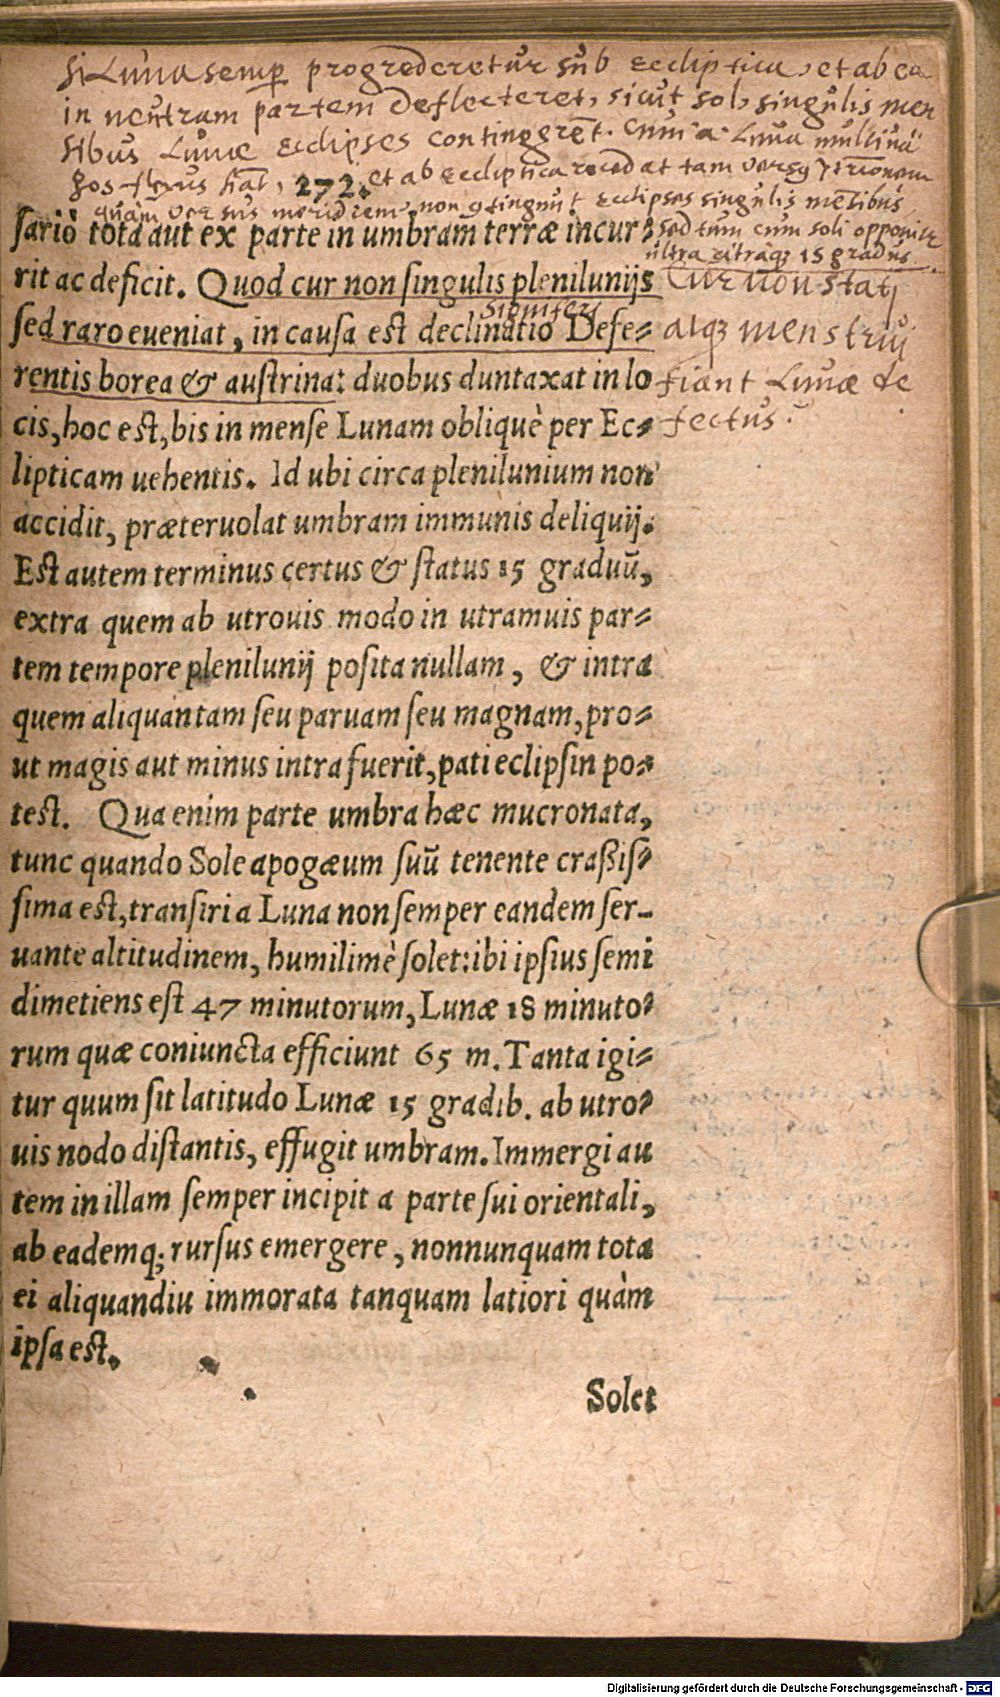 si Luna semp progrederetur sub Eccliptica, et ab ea
in neutram partem deflecteret, sicut sol, singulis men
sibus Lunæ Ecclipses contingerēt. Cum a. Luna multiua
gos flexus 272. et ab Eccliptica recedat tam versꝫ
quàm versus meridiem, non ꝯtingunt Ecclipses singulis mēsibus,
sed tum cum soli opponitr
ultra citraqꝫ 15 gradus.
sariò tota aut ex parte in umbram terræ incur-
rit ac deficit. Quod cur non singulis plenilunijs
signiferi
sed raro eueniat, in causa est declinatio Defe-
rentis borea & austrina: duobus duntaxat in lo
Cur non statis
atqꝫ menstruij
fiant Lunæ de
fectus.
cis, hoc est, bis in mense Lunam obliquè per Ec-
lipticam uehentis. Id ubi circa plenilunium non
accidit, præteruolat umbram immunis deliquij.
Est autem terminus certus & status 15 graduū,
extra quem ab utrouis modo in utramuis par-
tem tempore plenilunij posita nullam, & intra
quem aliquantam seu paruam seu magnam, pro-
ut magis aut minus intra fuerit, pati eclipsin po-
test. Qua enim parte umbra hæc mucronata,
tunc quando Sole apogæum suū tenente craßis-
sima est, transiri a Luna non semper eandem ser-
uante altitudinem, humilimè solet: ibi ipsius semi
dimetiens est 47 minutorum, Lunæ 18 minuto-
rum quæ coniuncta efficiunt 65 m. Tanta igi-
tur quum sit latitudo Lunæ 15 gradib. ab utro-
uis nodo distantis, effugit umbram. Immergi au
tem in illam semper incipit a parte sui orientali,
ab eademq; rursus emergere, nonnunquam tota
ei aliquandiu immorata tanquam latiori quàm
ipsa est.
Solet
Digitalisierung gefördert durch die Deutsche Forschungsgemeinschaft - DFG